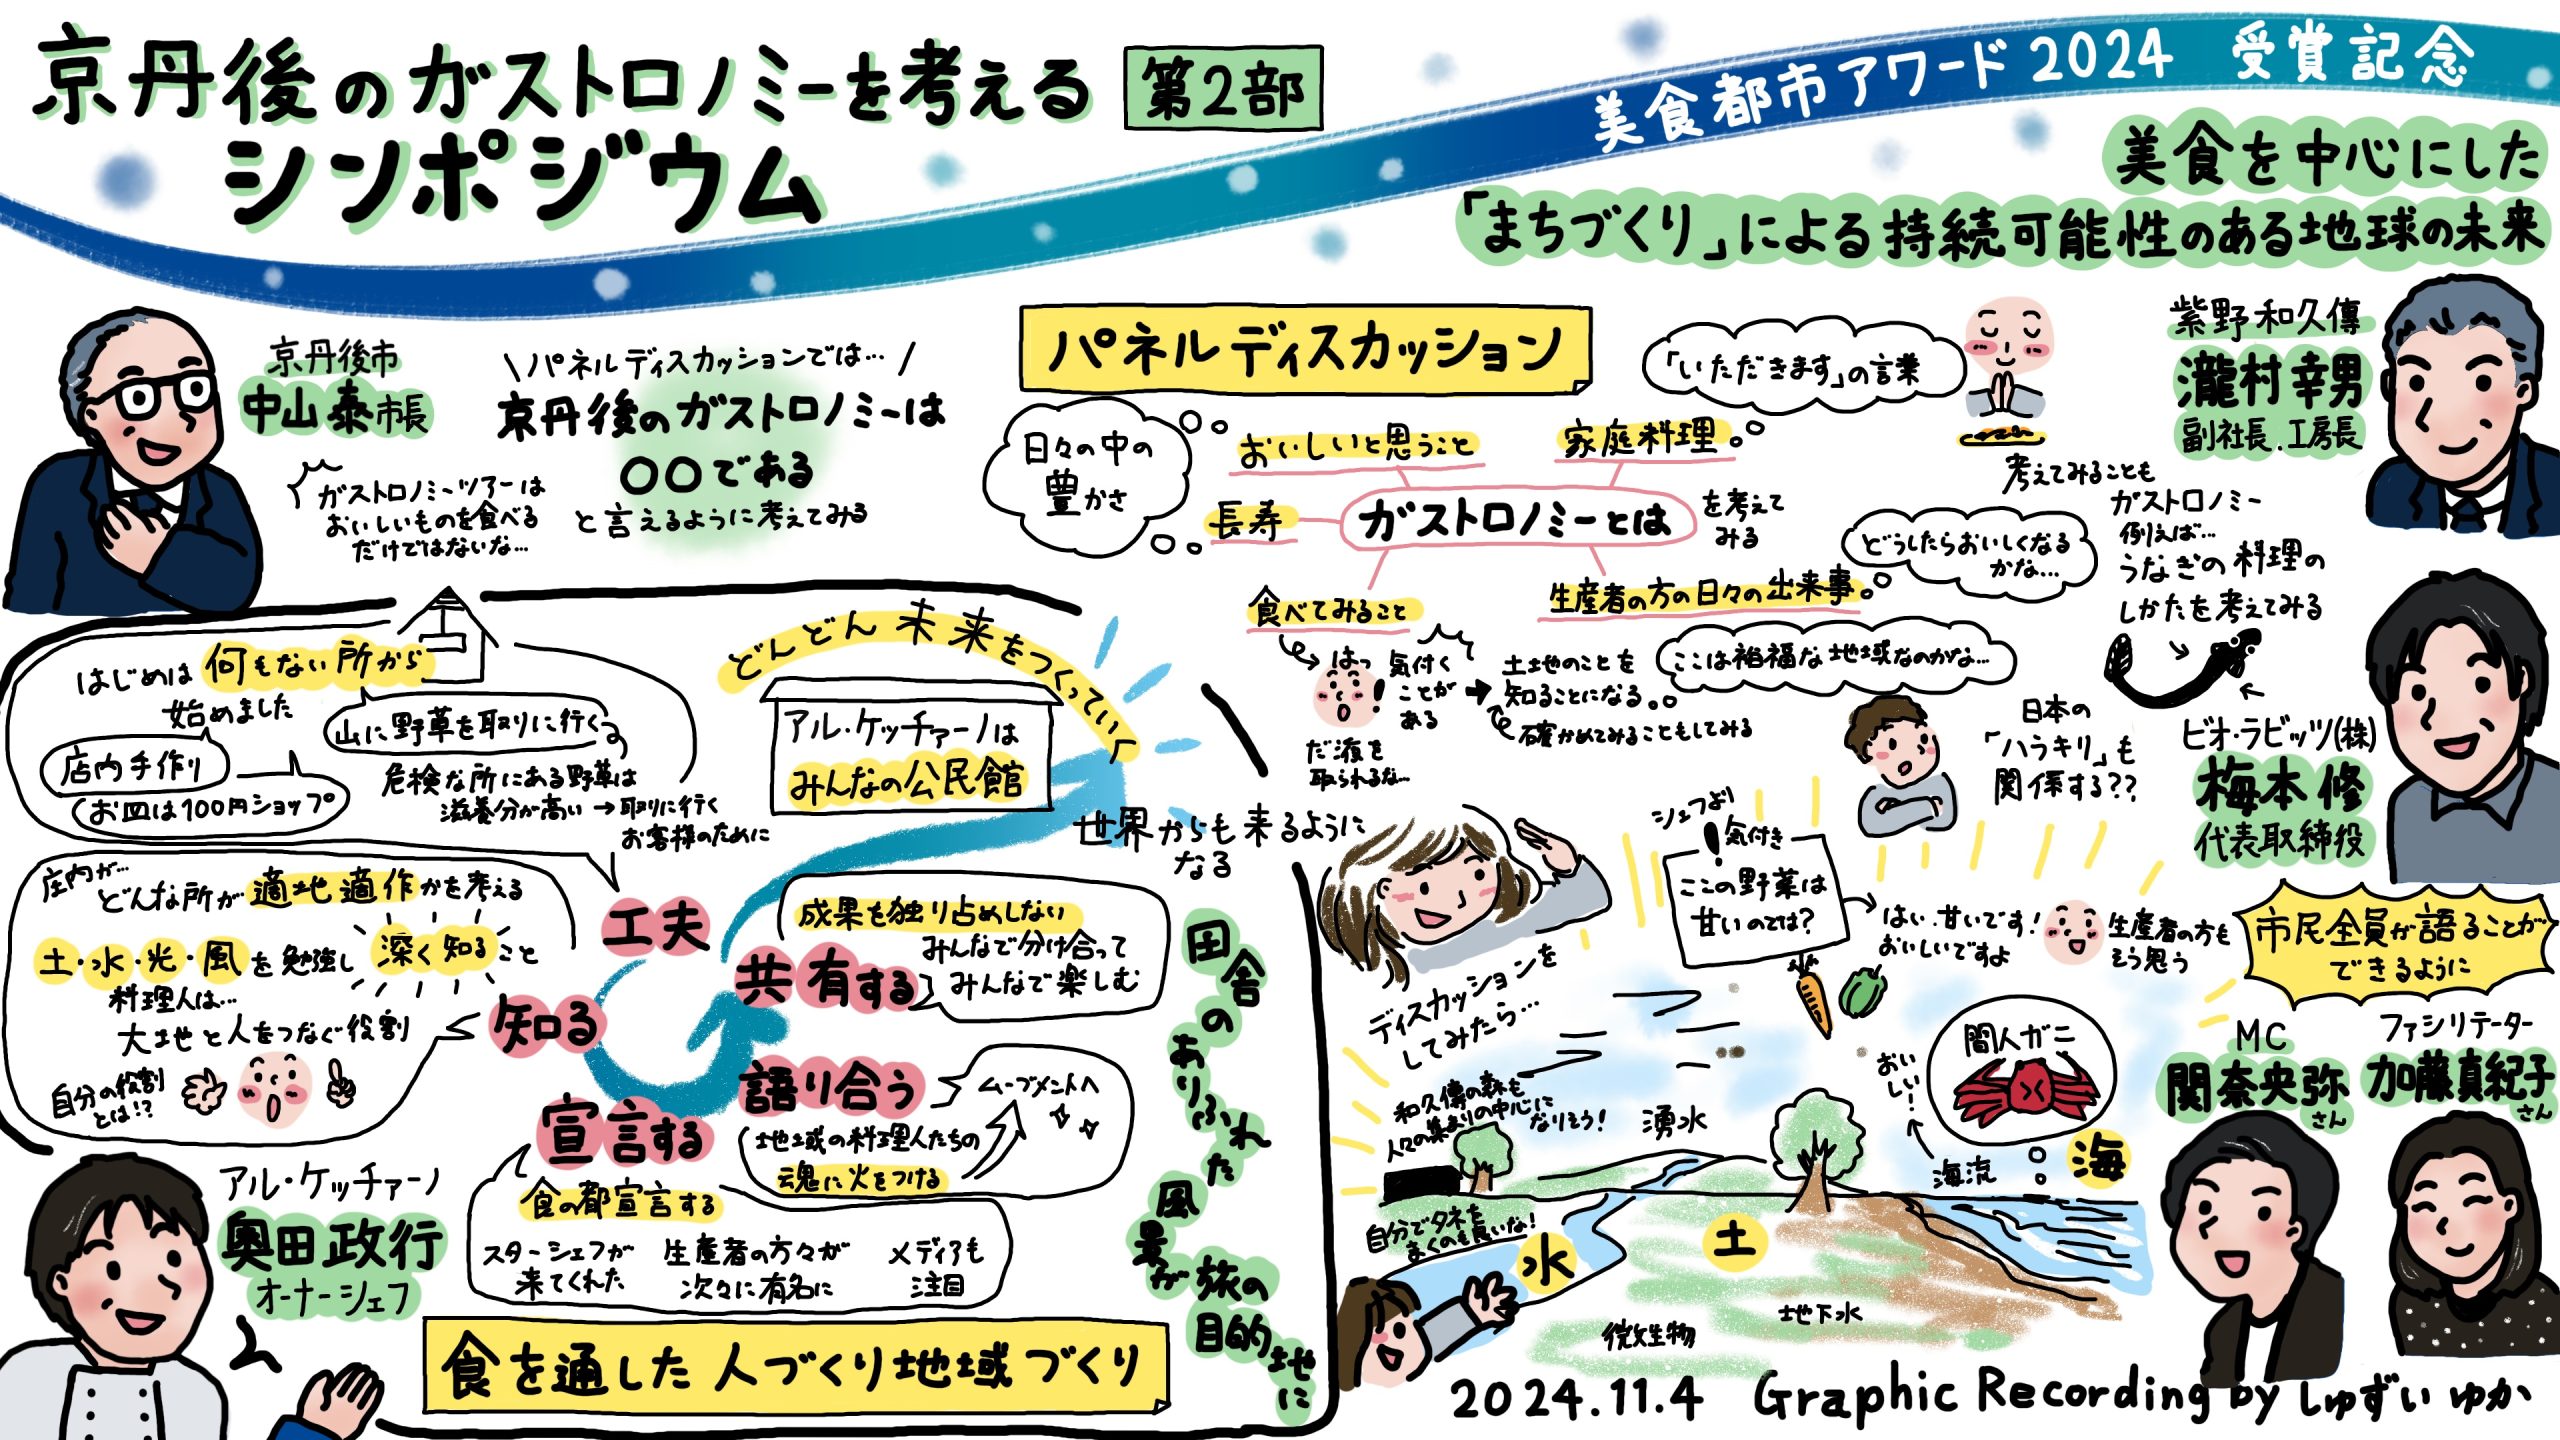 京丹後のガストロノミーを考える
シンポジウム
第2部
美食都市アワード2024 受賞記念
美食を中心にした
「まちづくり」による持続可能性のある地球の未来
京丹後市
中山泰市長
ガストロノミーツアーは
おいしいものを食べる
だけではないな…
\パネルディスカッションでは…/
京丹後のガストロノミーは
〇〇である
と言えるように考えてみる
はじめは何もない所から
始めました
山に野草を取りに行く
店内手作り
お皿は100円ショップ
危険な所にある野草は
滋養分が高い→取りに行く
お客様のために
庄内が…
どんな所が適地適作かを考える
土・水・光・風を勉強し深く知ること
料理人は…
大地と人をつなぐ役割
自分の役割
とは!?
アル・ケッチァーノ
奥田政行
オーナーシェフ
知る
工夫
宣言する
食の都宣言する
スターシェフが
来てくれた
生産者の方々が
次々に有名に
メディアも
注目
語り合う
ムーブメントへ
地域の料理人たちの
魂に火をつける
共有する
成果を独り占めしない
みんなで分け合って
みんなで楽しむ
どんどん未来をつくっていく
アル・ケッチァーノは
みんなの公民館
世界からも来るように
なる
田舎のありふれた風景が旅の目的地に
食を通した人づくり地域づくり
パネルディスカッション
ガストロノミーとは
を考えて
みる
おいしいと思うこと
家庭料理
「いただきます」の言葉
長寿
日々の中の
豊かさ
食べてみること
はっ!
気付く
ことが
ある
だ液を
取られるな…
→土地のことを
知ることになる
確かめてみることもしてみる
ここは裕福な地域なのかな…
生産者の方の日々の出来事
どうしたらおいしくなる
かな…
考えてみることも
ガストロノミー
例えば…
うなぎの料理の
しかたを考えてみる
日本の
「ハラキリ」も
関係する??
紫野和久傳
瀧村幸男
副社長.工房長
ビオ・ラビッツ(株)
梅本修
代表取締役
市民全員が語ることが
できるように
MC
関奈央弥さん
ファシリテーター
加藤真紀子さん
ディスカッションを
してみたら…
シェフより
!気付き
ここの野菜は
甘いのでは?
はい、甘いです!
おいしいですよ
生産者の方も
そう思う
和久傳の森も
人々の集まりの中心に
なりそう!
自分でタネを
まくのも良いな!
湧水
水
土
海
間人ガニ
おいしい!
海流
微生物
地下水
2024.11.4 Graphic Recording by しゅずい ゆか